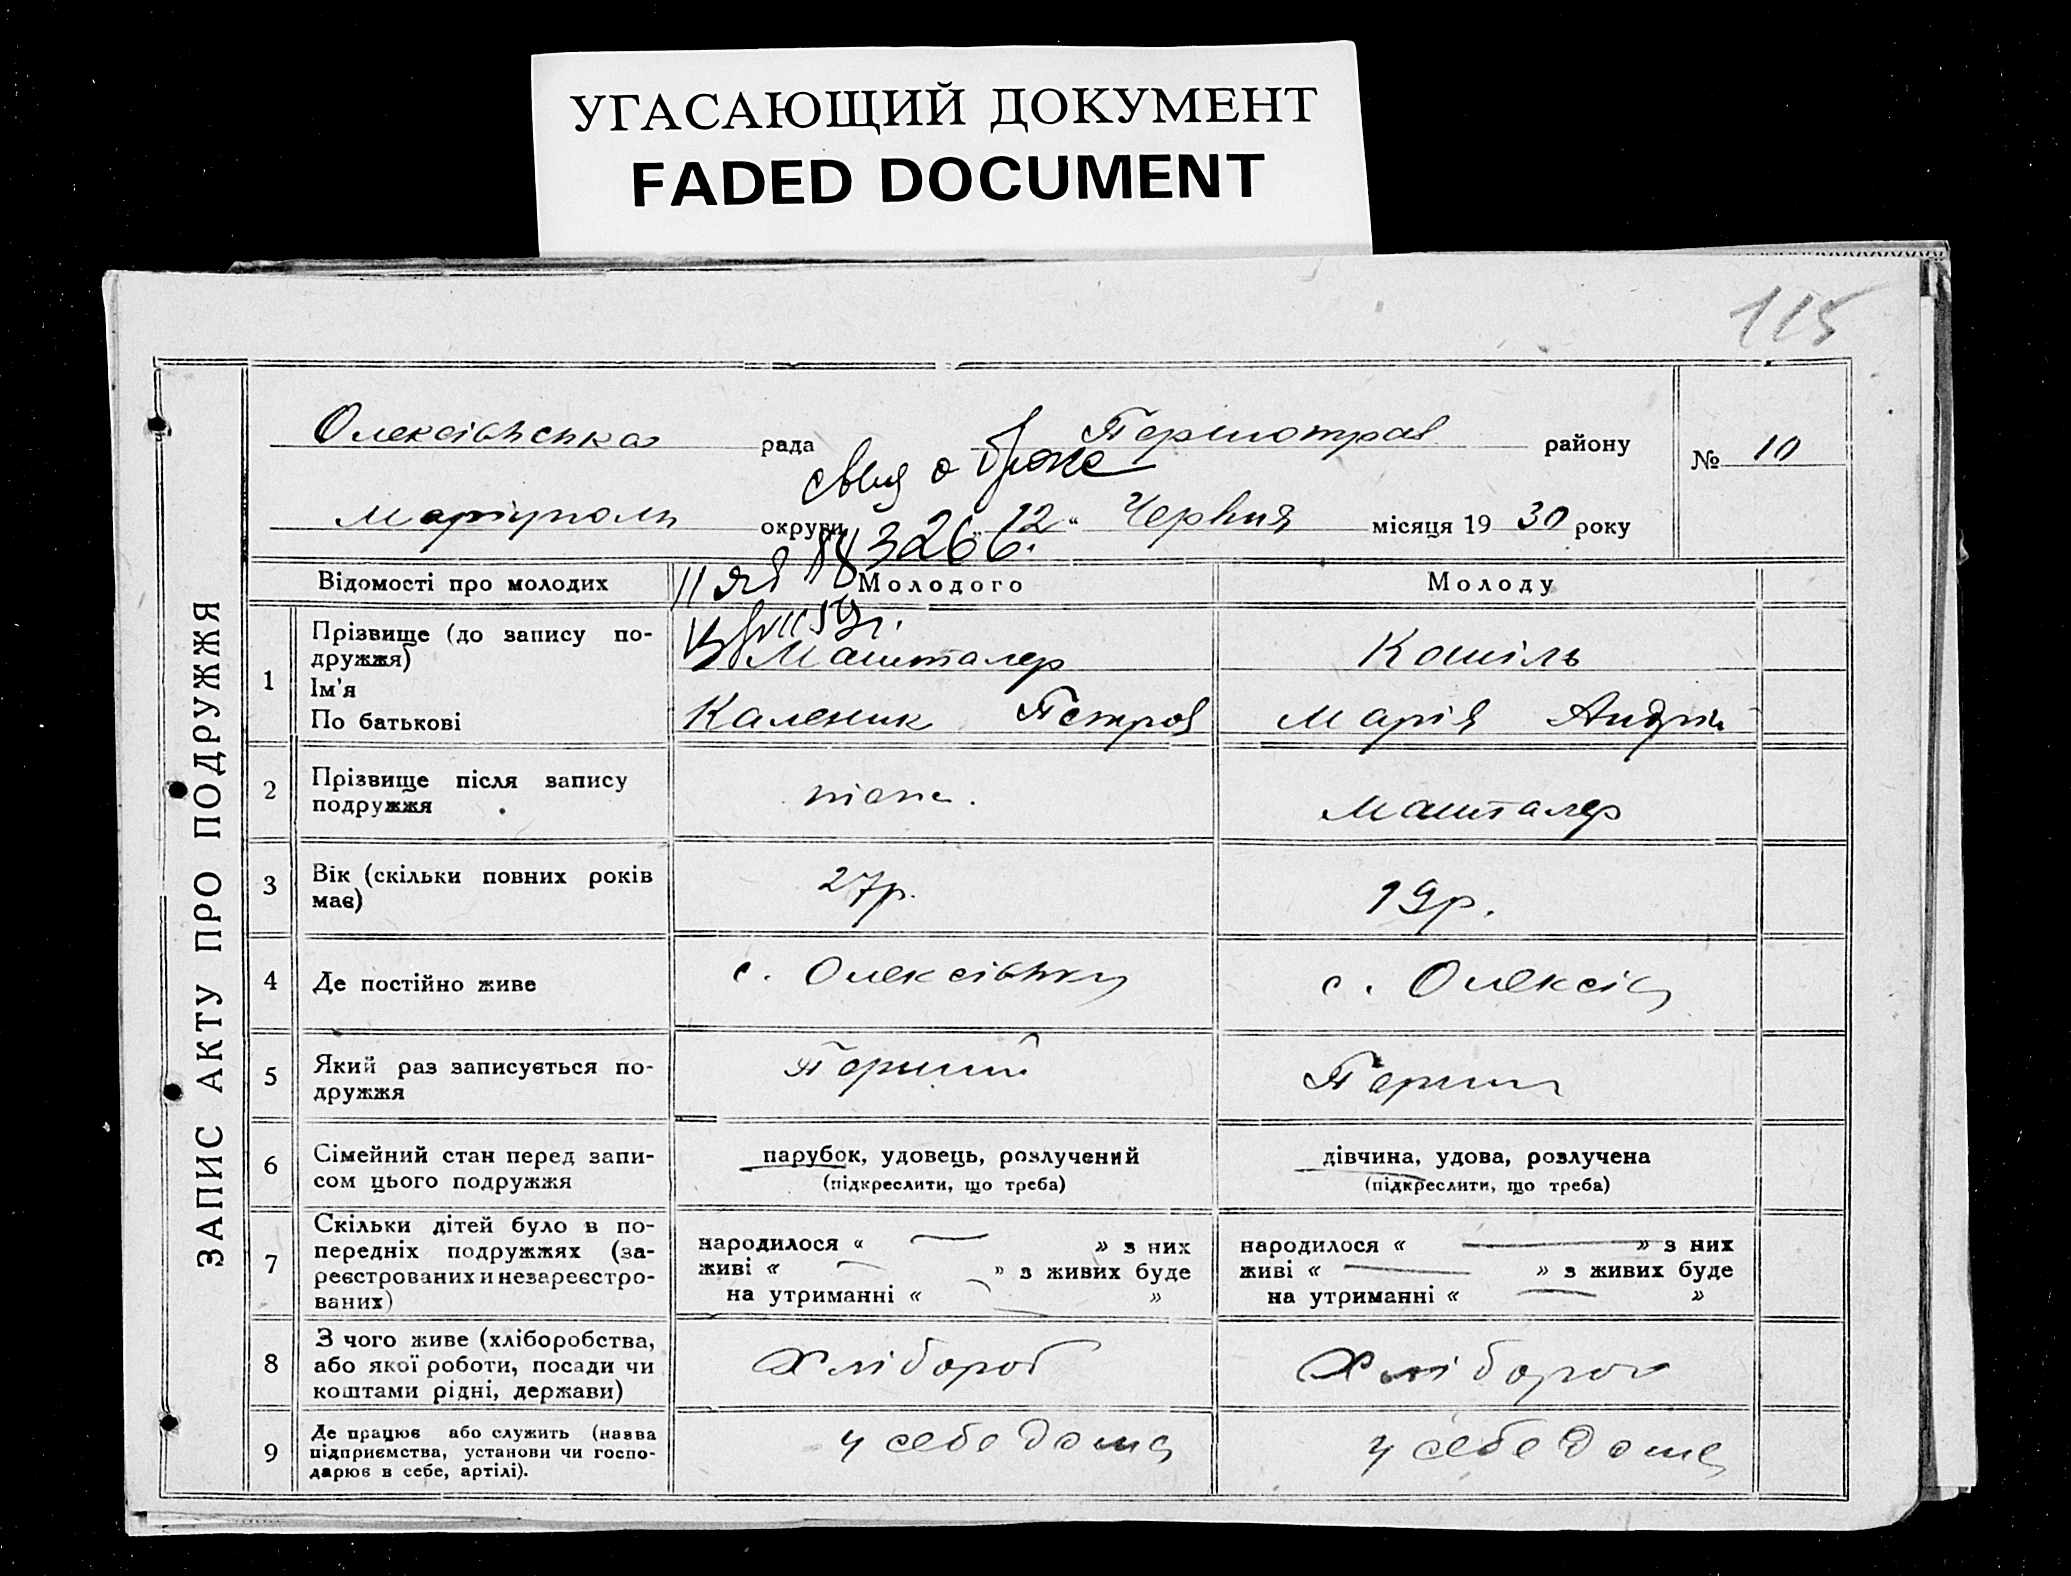 УГАСАЮЩИЙ ДОКУМЕНТ
FADED DOCUMENT
115
ЗАПИС АКТУ ПРО ПОДРУЖЖЯ
Олексіївська рада Першотрав району
№ 10
свид о браке
Маріуполь округи „12“ Червня місяця 1930 року
3266.
II ЯЯ
Відомості про молодих Молодого Молоду
1 Прізвище (до запису по-
дружжя) Машталер Кошіль
Ім'я
По батькові Каленик Петров Марія Андрій
2 Прізвище після запису
подружжя Машталер
3 Вік (скільки повних років
має) 27р. 19р.
4 Де постійно живе с. Олексіївки с. Олексіїв
5 Який раз записується по-
дружжя Перший Перший
6 Сімейний стан перед запи-
сом цього подружжя
парубок, удовець, розлучений
(підкреслити, що треба)
дівчина, удова, розлучена
(підкреслити, що треба)
7 Скільки дітей було в по-
передніх подружжях (за-
реєстрованих и незареєстро-
ваних)
народилося « — » з них
живі « — » з живих буде
на утриманні « — »
народилося « — » з них
живі « — » з живих буде
на утриманні « — »
8 З чого живе (хліборобства,
або якої роботи, посади чи
коштами рідні, держави)
Хлібороб Хлібороб
9 Де працює або служить (назва
підприємства, установи чи госпо-
дарює в себе, артілі).
у себе дома у себе дома